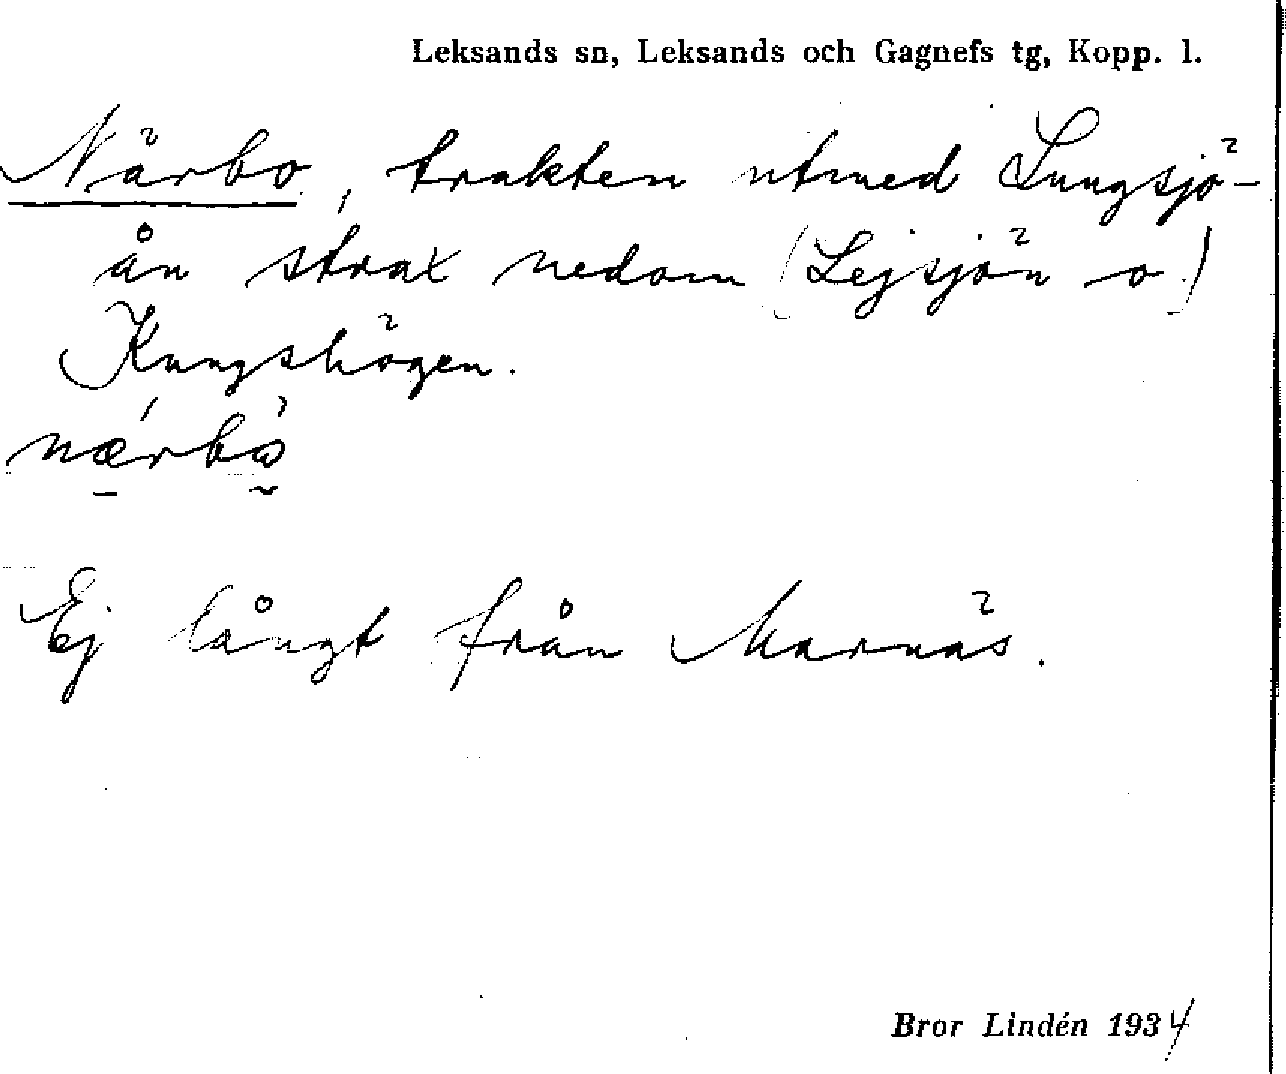 Leksands sn, Leksands och Gagnefs tg, Kopp. l.
Närbo, trakten utmed Lungsjö-
ån strax nedom (Lejsjön o.)
Kungshögen.
nærbo
Ej långt från Marnäs.
Bror Lindén 1934